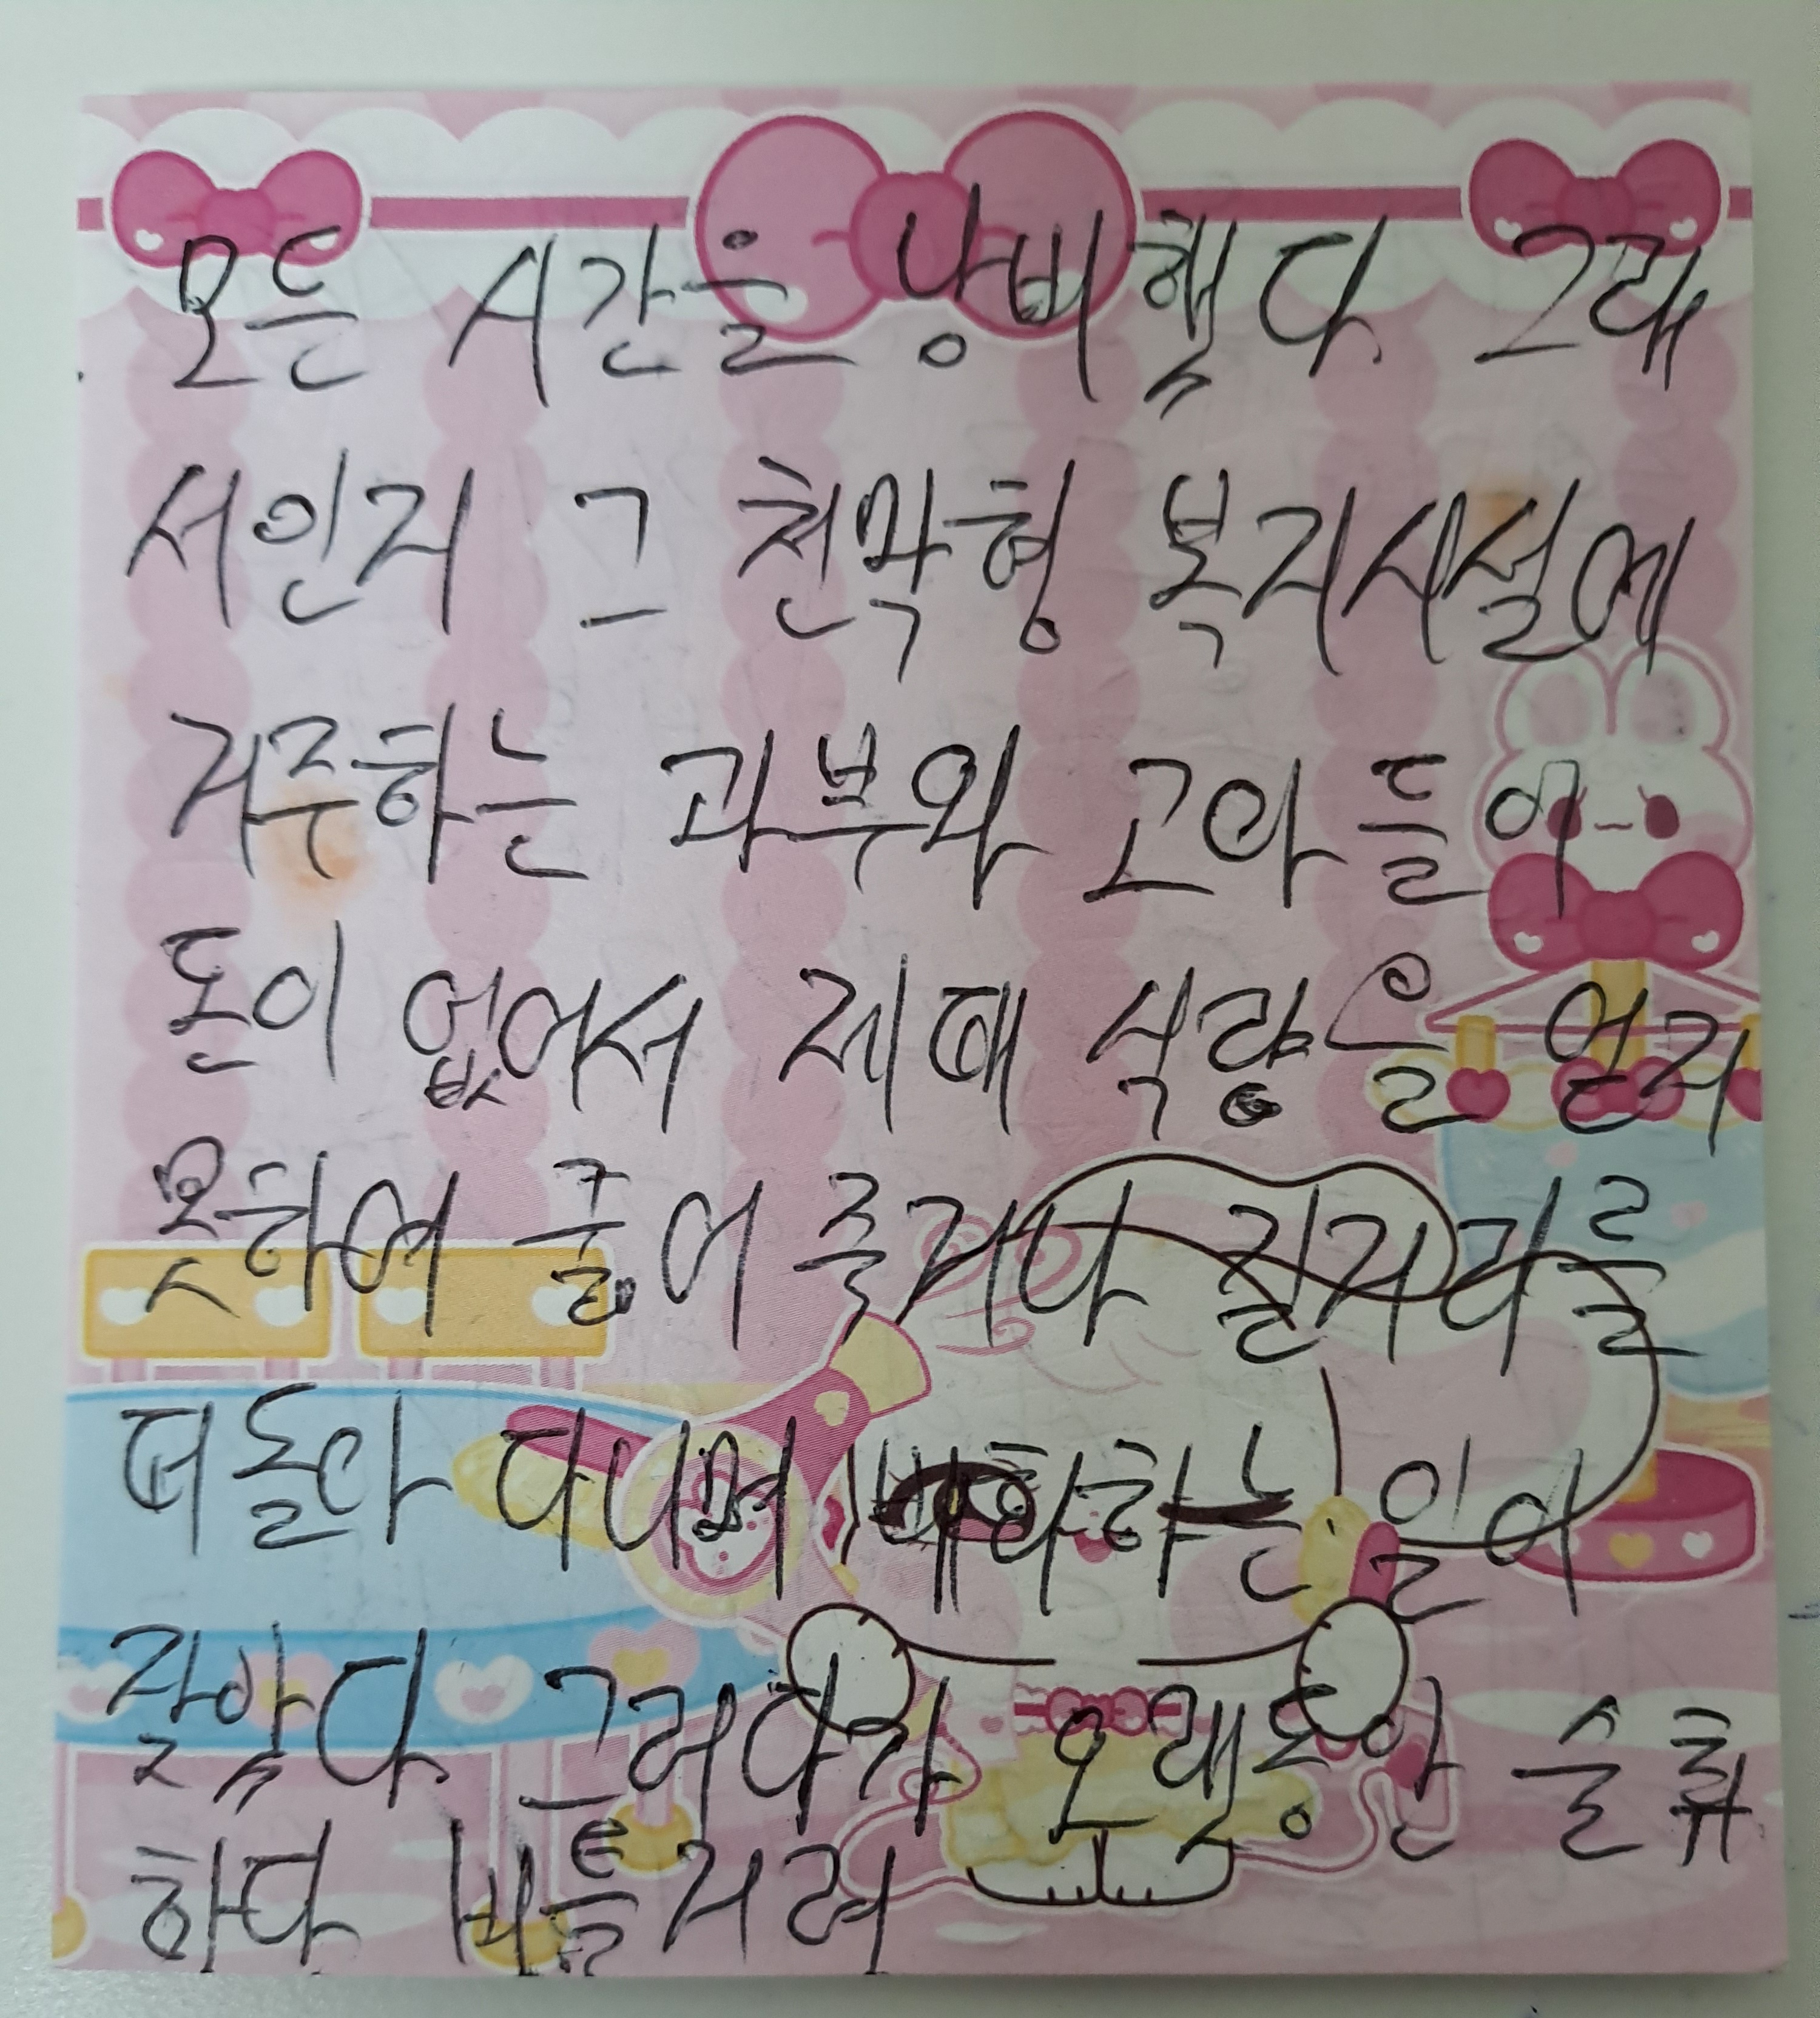 모든 시간을 낭비했다. 그래
서인지 그 천막형 복지시설에
거주하는 과부와 고아들이
돈이 없어서 제때 식량을 얻지
못하여 굶어 죽거나 길거리를
떠돌아 다니며 배회하는 일이
잦았다. 그러다가 오랫동안 술 퓨
하다 비틀거려